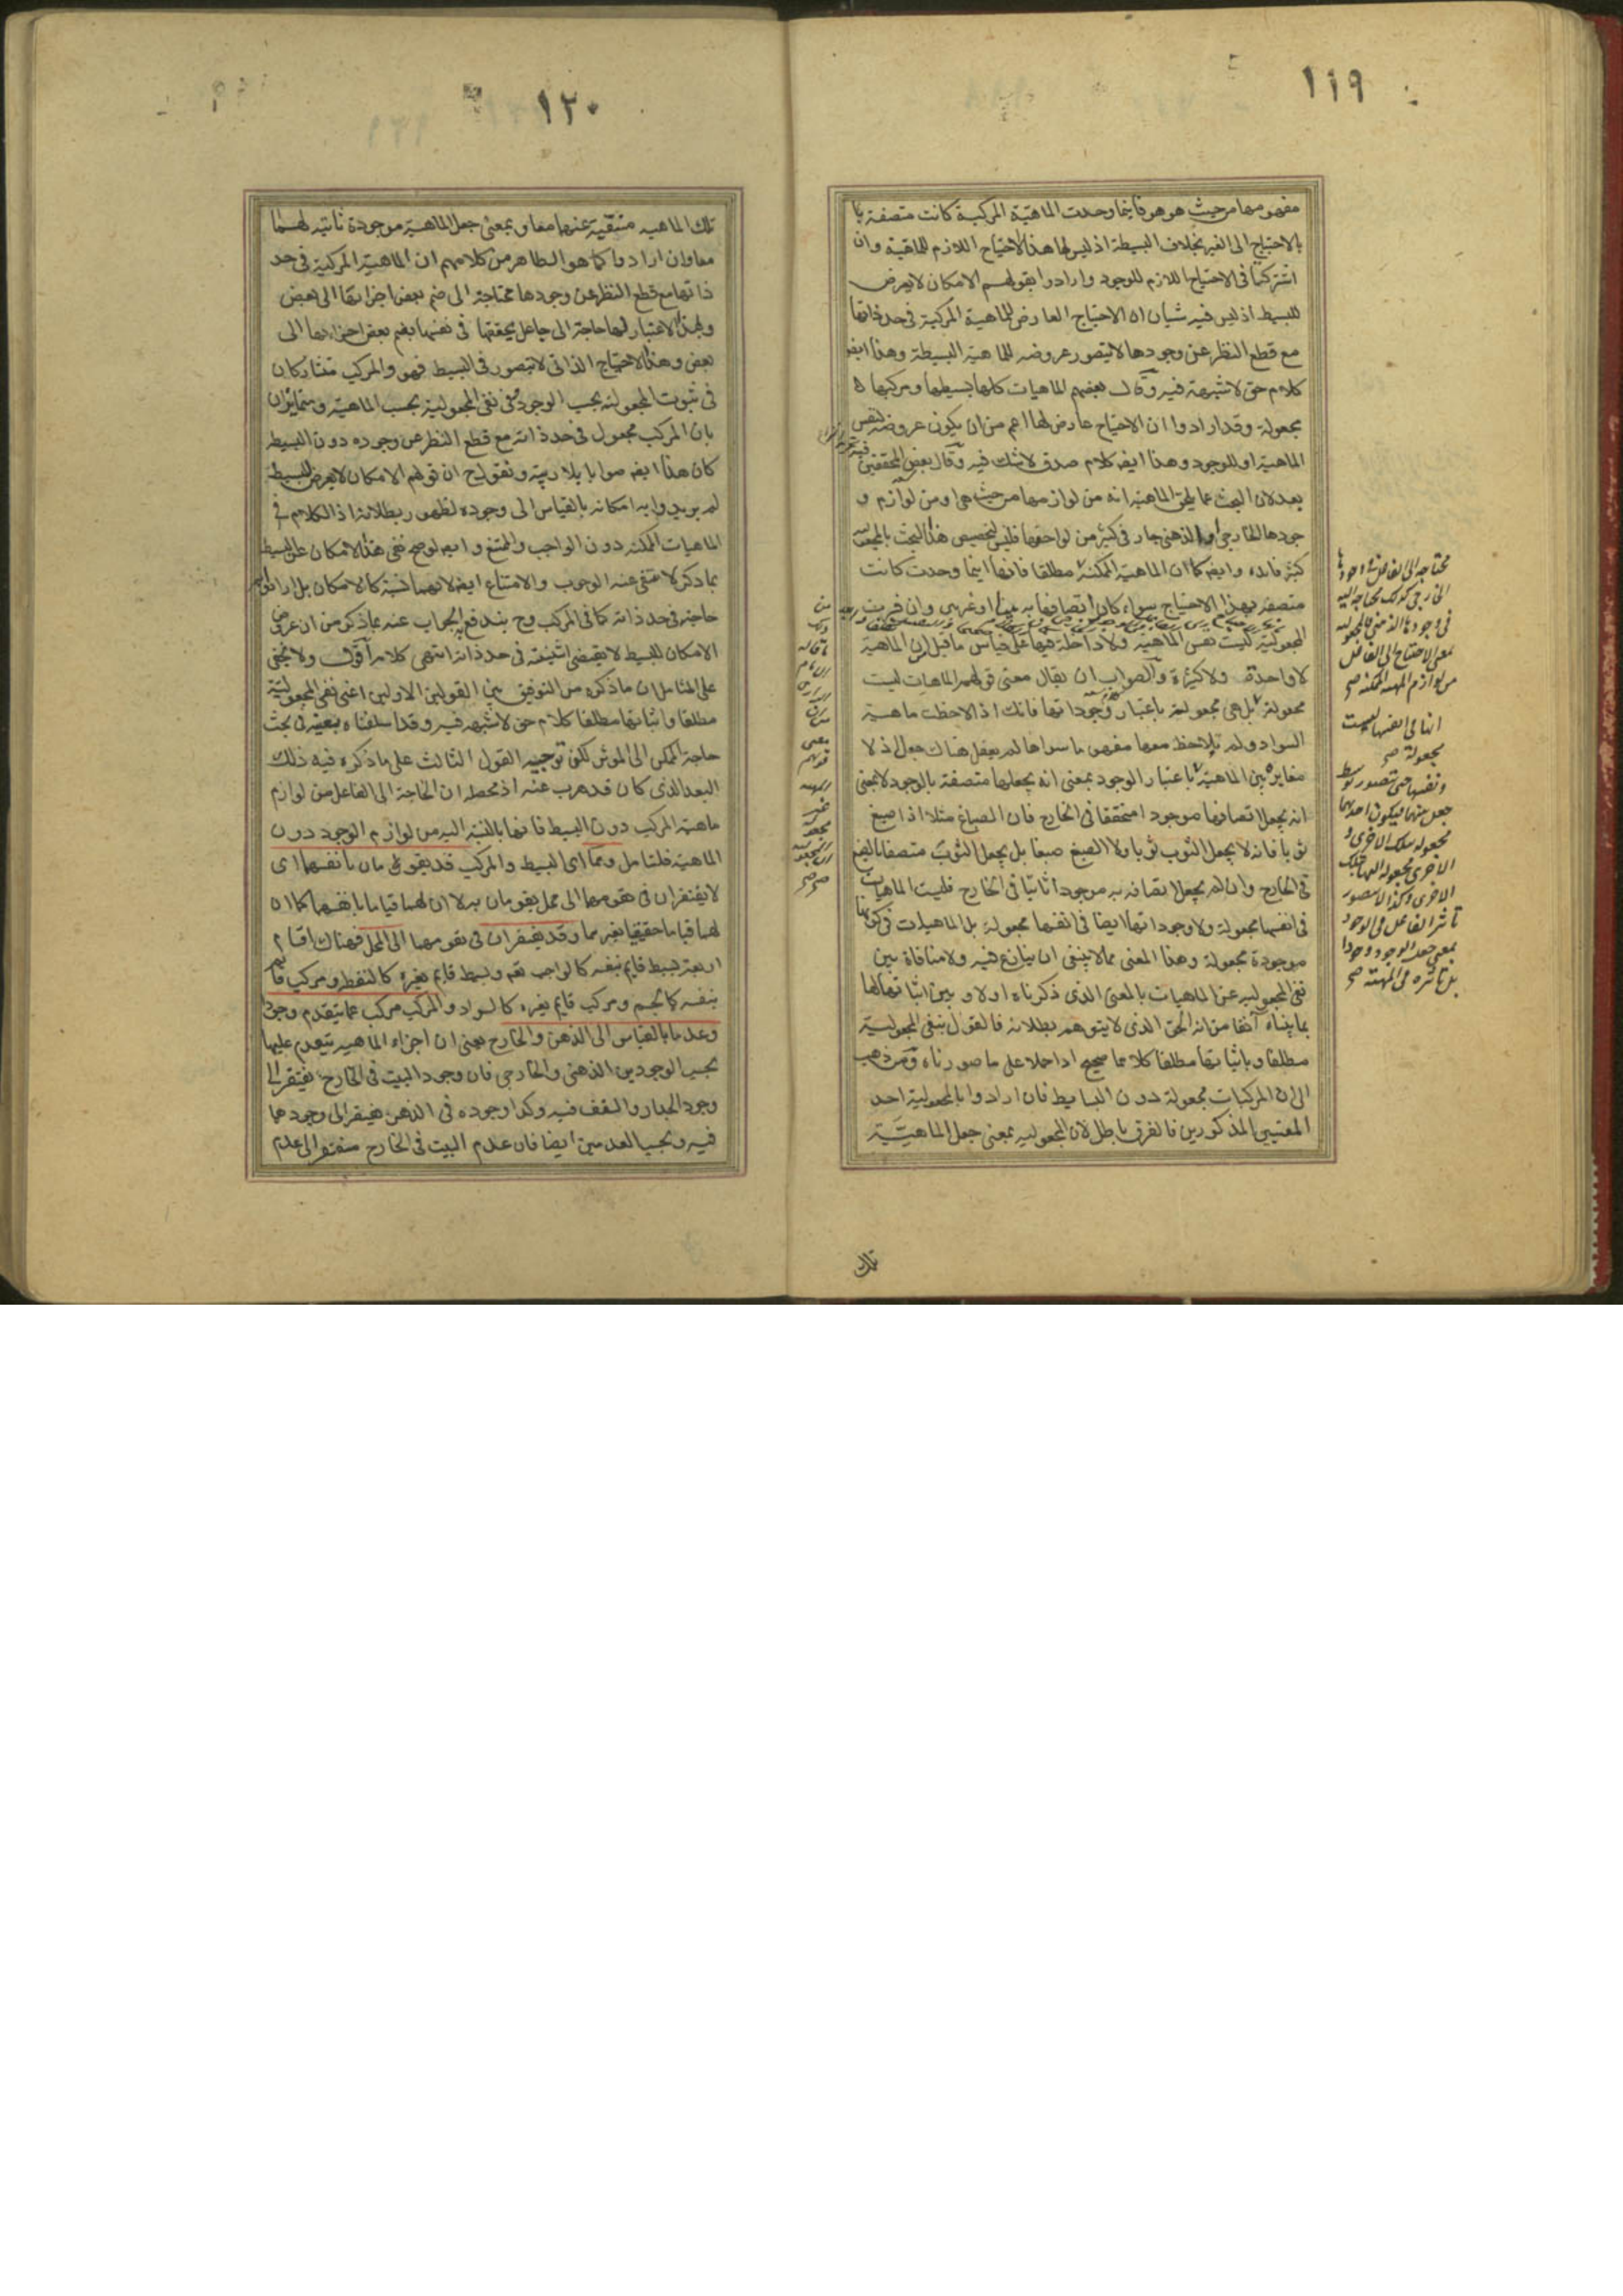 ١١٩
مفهومها من حيث هو هو فاينما وجدت الماهية المركبة كانت متصفة
بالاحتياج الى الغير بخلاف البسيطة اذ ليس لها هذا الاحتياج اللازم للماهية وان
اشتركتا فى الاحتياج اللازم للوجود وارادوا بقولهم الامكان لا يعرض
للبسيط اذ ليس فيه شيئان ان الاحتياج العارض للماهية المركبة فى حد ذاتها
مع قطع النظر عن وجودها لا يتصور عروضه للماهية البسيطة وهذا ايضا
كلام حق لا شبهة فيه وقال بعضهم الماهيات كلها بسيطها ومركبها
مجعولة وقد ارادوا ان الاحتياج عارض لها اعم من ان يكون عروضه لنفس
الماهية او للوجود وهذا ايضا كلام صدق لا شك فيه وقال بعض المحققين
بعد لان البحث عما يلحق الماهية انه من لوازمها من حيث هى او من لوازم و
جودها الخارجى او الذهنى جار فى كثير من لواحقها فليس لتخصيص هذا البحث بالمجعولية
كثير فائدة وايضا كما ان الماهية الممكنة مطلقا فانها اينما وجدت كانت
متصفة بهذا الاحتياج سواء كان اتصافها به بينا او غير بين وان فسرت
المجعولية ليست نفس الماهية ولا داخلة فيها على قياس ما قيل من ان الماهية
لا واحدة ولا كثيرة والصواب ان يقال معنى قولهم الماهيات ليست
مجعولة بل هى مجعولة باعتبار وجوداتها فانك اذا لاحظت ماهية
السواد ولم تلاحظ معها مفهوما سواها لم يعقل هناك جعل اذ لا
مغايرة بين الماهية باعتبار الوجود بمعنى انه يجعلها متصفة بالوجود لا بمعنى
انه يجعل اتصافها موجودا متحققا فى الخارج فان الصباغ مثلا اذا صبغ
ثوبا فانه لا يجعل الثوب ثوبا ولا الصبغ صبغا بل يجعل الثوب متصفا بالصبغ
فى الخارج وان لم يجعل اتصافه به موجودا ثابتا فى الخارج فليست الماهيات
فى انفسها مجعولة ولا وجوداتها ايضا فى انفسها مجعولة بل الماهيات فى كونها
موجودة مجعولة وهذا المعنى مما لا ينبغى ان ينازع فيه ولا منافاة بين
نفى المجعولية عن الماهيات بالمعنى الذى ذكرناه اولا وبين اثباتها لها
بما بيناه آنفا من انه الحق الذى لا يتوهم بطلانه فالقول بنفى المجعولية
مطلقا وباثباتها مطلقا كلاهما صحيح اذا حملا على ما صورناه ومن ذهب
الى ان المركبات مجعولة دون البسايط فان ارادوا بالمجعولية احد
المعنيين المذكورين فالفرق باطل لان المجعولية بمعنى جعل الماهية
تلك
محتاجة الى الفاعل فى وجودها
الخارجى كذلك محتاجة اليه
فى وجودها الذهنى فالمجعولية
بمعنى الاحتياج الى الفاعل
من لوازم المهية الممكنة صح
انها فى انفسها ليست
بمجعولة صح
ونفسها حتى يتصور توسط
جعل بينهما فيكون احديهما
مجعولة تلك الاخرى و
وكذا لا يتصور
تاثير الفاعل فى الوجود
بمعنى جعل الوجود وجودا
بل تاثيره فى المهية صح
١٢٠
تلك الماهية منتفية عنهما معا وبمعنى جعل الماهية موجودة ثابتة لهما
معا وان ارادوا كما هو الظاهر من كلامهم ان الماهية المركبة فى حد
ذاتها مع قطع النظر عن وجودها محتاجة الى ضم بعض اجزائها الى بعض
وبهذا الاعتبار لها حاجة الى جاعل يحققها فى نفسها بضم بعض اجزاءها الى
بعض وهذا الاحتياج الذاتى لا يتصور فى البسيط فهو والمركب متشاركان
فى ثبوت المجعولية بحسب الوجود وفى نفى المجعولية بحسب الماهية ومتمايزان
بان المركب مجعول فى حد ذاته مع قطع النظر عن وجوده دون البسيط
كان هذا ايضا صوابا بلا ريبة ونقول ح ان قولهم الامكان لا يعرض للبسيطة
لم يريدوا به امكانه بالقياس الى وجوده لظهور بطلانه اذ الكلام فى
الماهيات الممكنة دون الواجب والممتنع وايضا لو صح نفى هذا الامكان عن البسيط
بما ذكر لانتفى عنه الوجوب والامتناع ايضا لانهما نسبة كالامكان بل ارادوا
حاجته فى حد ذاته كما فى المركب وح يندفع الجواب عنه بما ذكر من ان عروض
الامكان للبسيط لا يقتضى اثنينية فى حد ذاته انتهى كلامه اقول ولا يخفى
على المتامل ان ما ذكره من التوفيق بين القولين الاولين اعنى نفى المجعولية
مطلقا واثباتها مطلقا كلام حق لا شبهة فيه وقد اسلفناه بعينه فى بحث
حاجة الممكن الى المؤثر لكن توجيه القول الثالث على ما ذكره فيه ذلك
البعد الذى كان قد هرب عنه اذ محطه ان الحاجة الى الفاعل من لوازم
ماهية المركب دون البسيط فانها بالنسبة اليه من لوازم الوجود دون
الماهية فليتامل وهما اى البسيط والمركب قد يقومان بانفسهما اى
لا يفتقران فى تقومهما الى محل يقومان به لا ان لهما قياما بانفسهما كما ان
لهما قياما حقيقيا بغيرهما وقد يفتقران فى تقومهما الى المحل فهناك اقسام
اربعة بسيط قايم بنفسه كالواجب تعم وبسيط قايم بغيره كالنقطة ومركب قايم
بنفسه كالجسم ومركب قايم بغيره كالسواد والمركب مركب عما يتقدم وجودا
وعدما بالقياس الى الذهن والخارج بمعنى ان اجزاء الماهية تتقدم عليها
بحسب الوجودين الذهنى والخارجى فان وجود البيت فى الخارج يفتقر الى
وجود الجدار والسقف فيه وكذا وجوده فى الذهن يفتقر الى وجودهما
فيه وبحسب العدمين ايضا فان عدم البيت فى الخارج مفتقر الى عدم